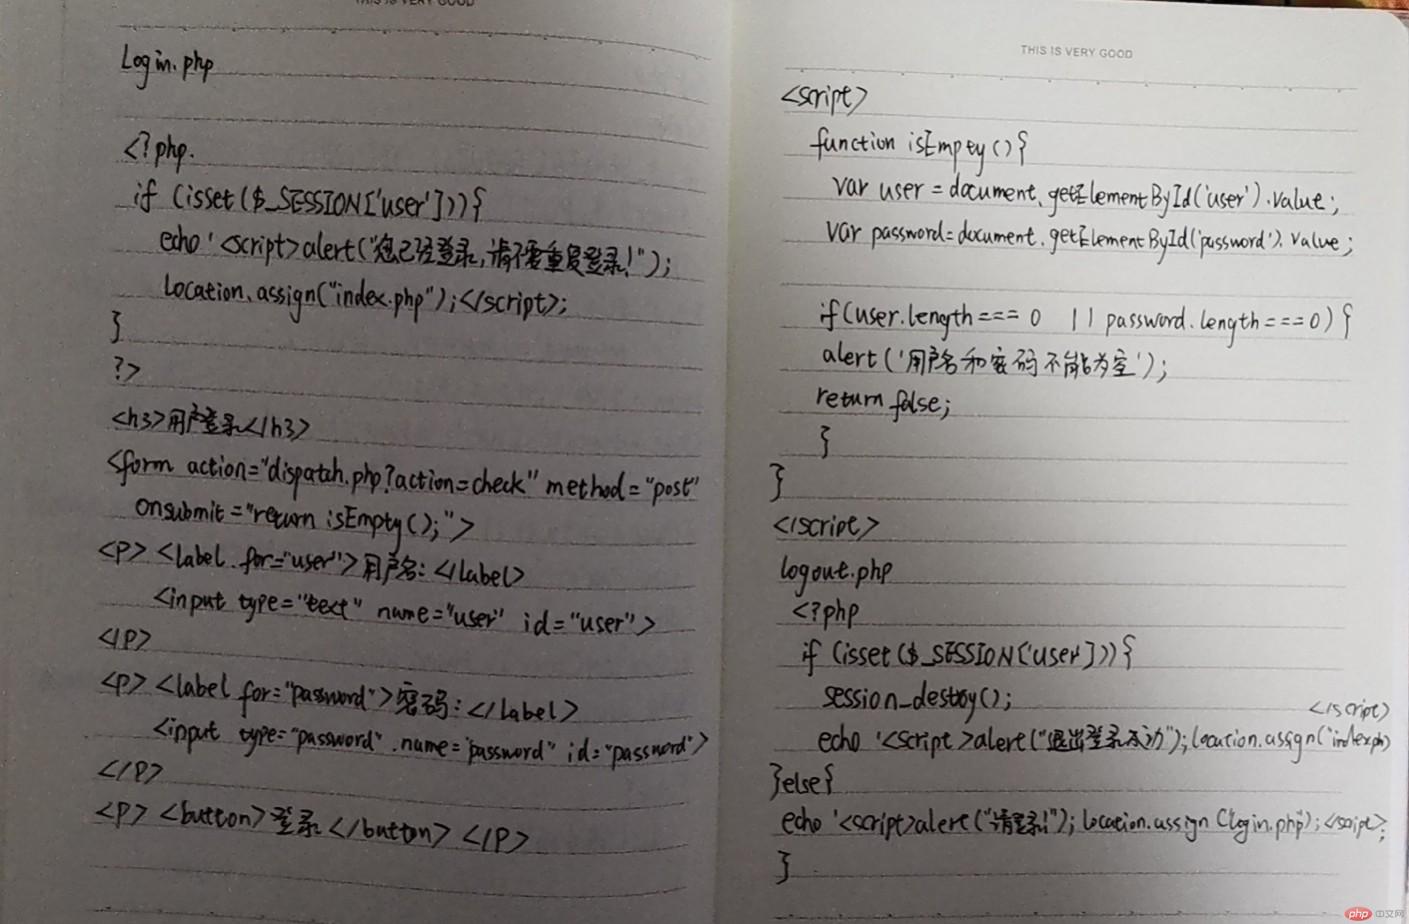 THIS IS VERY GOOD
Login.php
<?php.
if (isset($_SESSION['user'])){
echo '<script>alert("您已经登录,请不要重复登录!");
location.assign("index.php");</script>;
}
?>
<h3>用户登录</h3>
<form action="dispatch.php?action=check" method="post"
onsubmit="return isEmpty();">
<P> <label for="user">用户名:</label>
<input type="text" name="user" id="user">
</P>
<P> <label for="password">密码:</label>
<input type="password" name="password" id="password">
</P>
<P> <button>登录</button> </P>
THIS IS VERY GOOD
<script>
function isEmpty(){
var user=document.getElementById('user').value;
var password=document.getElementById('password').value;
if(user.length===0 || password.length===0){
alert('用户名和密码不能为空');
return false;
}
}
</script>
logout.php
<?php
if (isset($_SESSION['user'])){
session_destoy();
</script>
echo '<script>alert("退出登录成功");location.assign("index.ph)
}else{
echo '<script>alert("请登录!");location.assign(login.php);</script>;
}
php 中文网